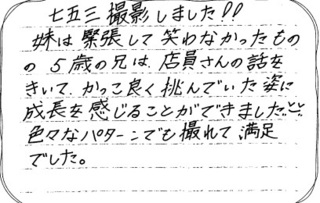 七五三撮影しました!!
妹は緊張して笑わなかったもの
の5歳の兄は、店員さんの話を
きいて、かっこ良く挑んでいた姿に
成長を感じることができました
色々なパターンでも撮れて満足
でした。